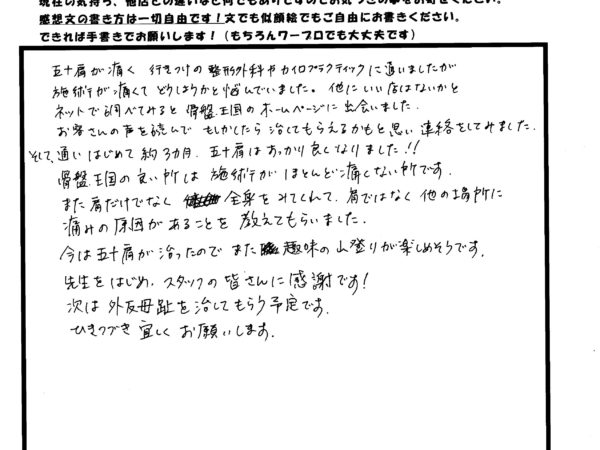 現在の気持ち、他店との違いなど何でもありですのでお気づきの事をお書きください。
感想文の書き方は一切自由です!文でも似顔絵でもご自由にお書きください。
できれば手書きでお願いします!(もちろんワープロでも大丈夫です)
五十肩が痛く 行きつけの整形外科やカイロプラクティックに通いましたが
施術が痛くてどうしようかと悩んでいました。他にいい店はないかと
ネットで調べてみると骨盤王国のホームページに出会いました。
お客さんの声を読んで もしかしたら治してもらえるかもと思い連絡をしてみました。
そして、通いはじめて約3カ月、五十肩はすっかり良くなりました!!
骨盤王国の良い所は施術がほとんど痛くない所です。
また肩だけでなく 全身をみてくれて、肩ではなく他の場所に
痛みの原因があることを教えてもらいました。
今は五十肩が治ったのでまた趣味の山登りが楽しめそうです。
先生をはじめ、スタッフの皆さんに感謝です!
次は外反母趾を治してもらう予定です。
ひきつづき宜しくお願いします。